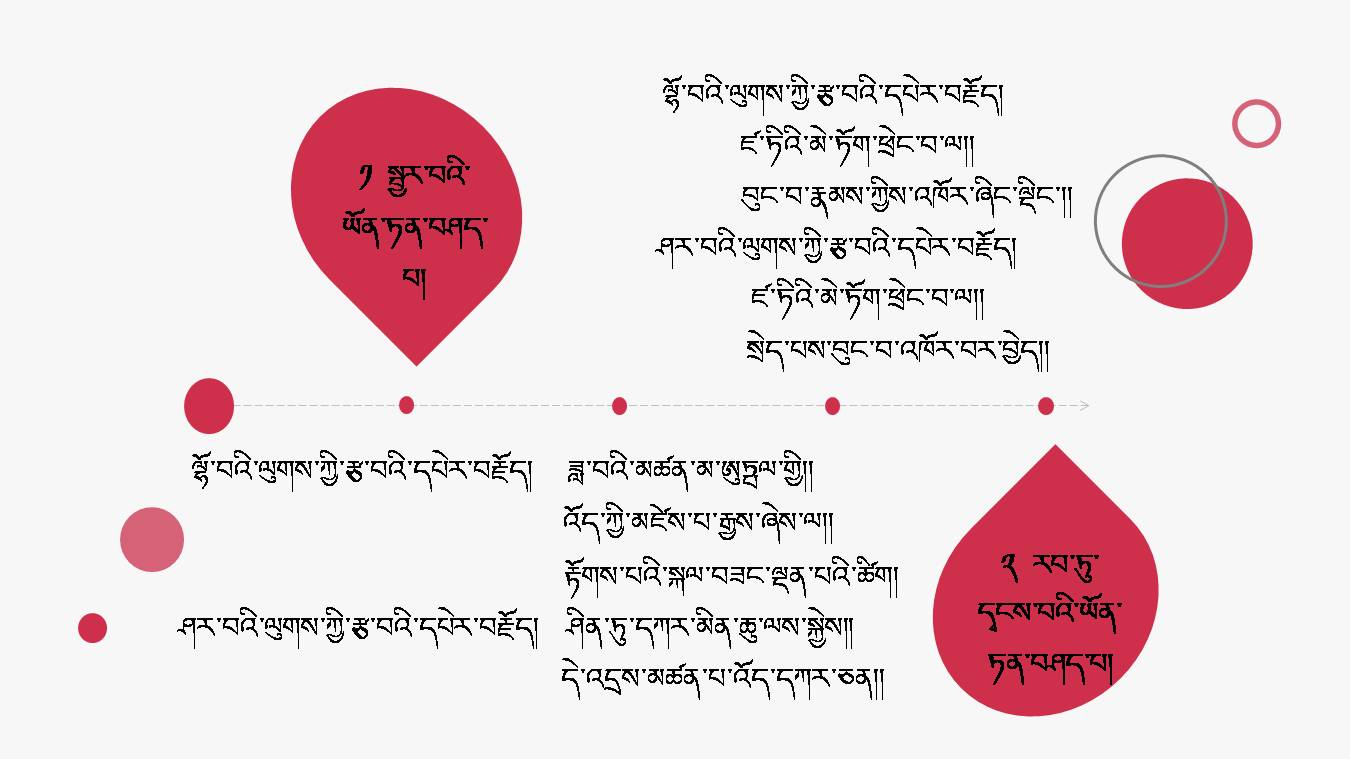 ༡ སྦྱར་བའི་
ཡོན་ཏན་བཤད་
པ།
ལྷོ་བའི་ལུགས་ཀྱི་རྩ་བའི་དཔེར་བརྗོད།
ཛ་ཏིའི་མེ་ཏོག་ཕྲེང་བ་ལ།།
བུང་བ་རྣམས་ཀྱིས་འཁོར་ཞིང་ལྡིང་།།
ཤར་བའི་ལུགས་ཀྱི་རྩ་བའི་དཔེར་བརྗོད།
ཛ་ཏིའི་མེ་ཏོག་ཕྲེང་བ་ལ།།
སྲེད་པས་བུང་བ་འཁོར་བར་བྱེད།།
ལྷོ་བའི་ལུགས་ཀྱི་རྩ་བའི་དཔེར་བརྗོད།
ཟླ་བའི་མཚན་མ་ཨུཏྤལ་གྱི།།
འོད་ཀྱི་མཛེས་པ་རྒྱས་ཞེས་ལ།།
རྟོགས་པའི་སྐལ་བཟང་ལྡན་པའི་ཚིག།
ཤར་བའི་ལུགས་ཀྱི་རྩ་བའི་དཔེར་བརྗོད།
ཤིན་ཏུ་དཀར་མིན་ཆུ་ལས་སྐྱེས།།
དེ་འདྲས་མཚན་པ་འོད་དཀར་ཅན།།
༢ རབ་ཏུ་
དྭངས་བའི་ཡོན་
ཏན་བཤད་པ།